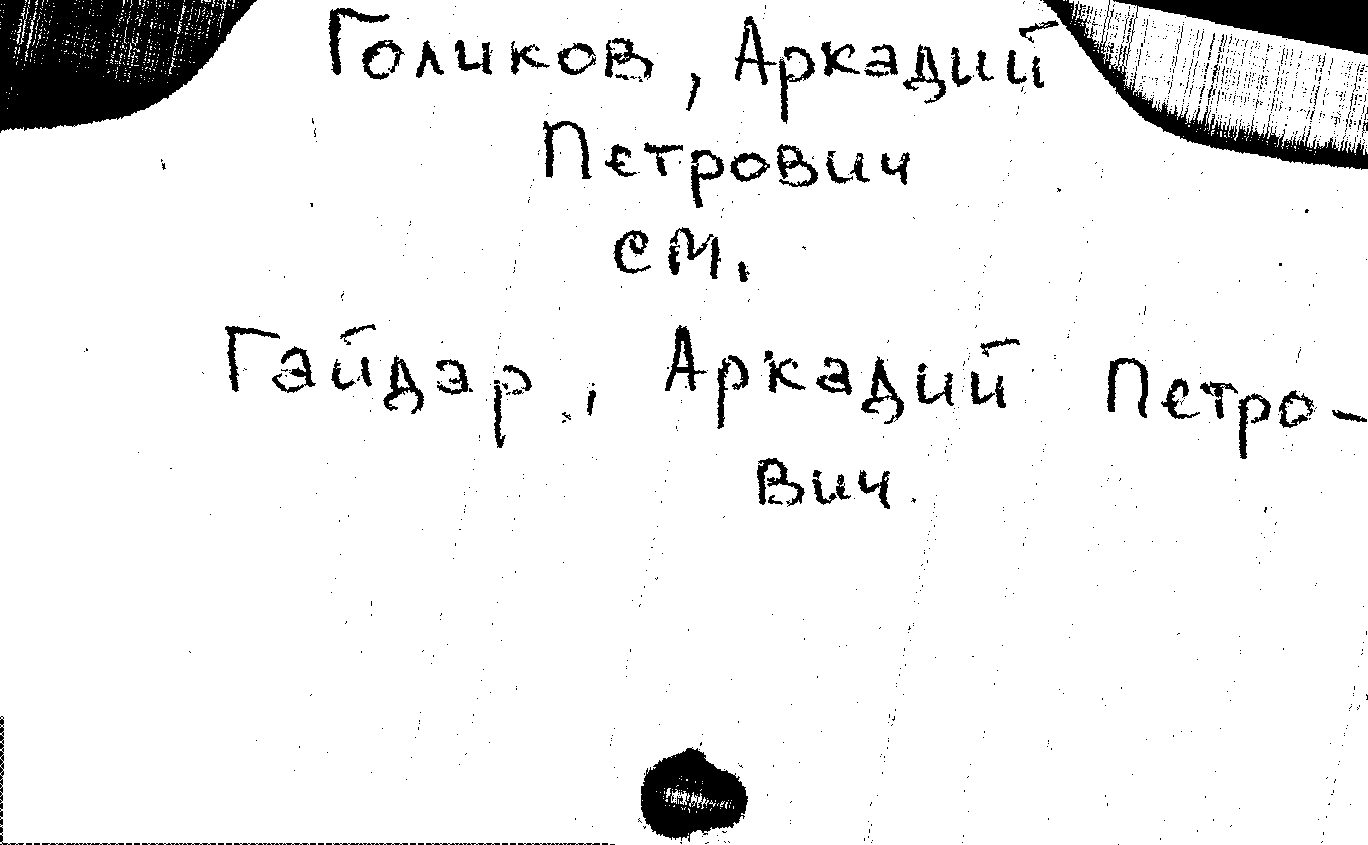 Голиков, Аркадий
Петрович
см.
Гайдар, Аркадий Петро-
вич.